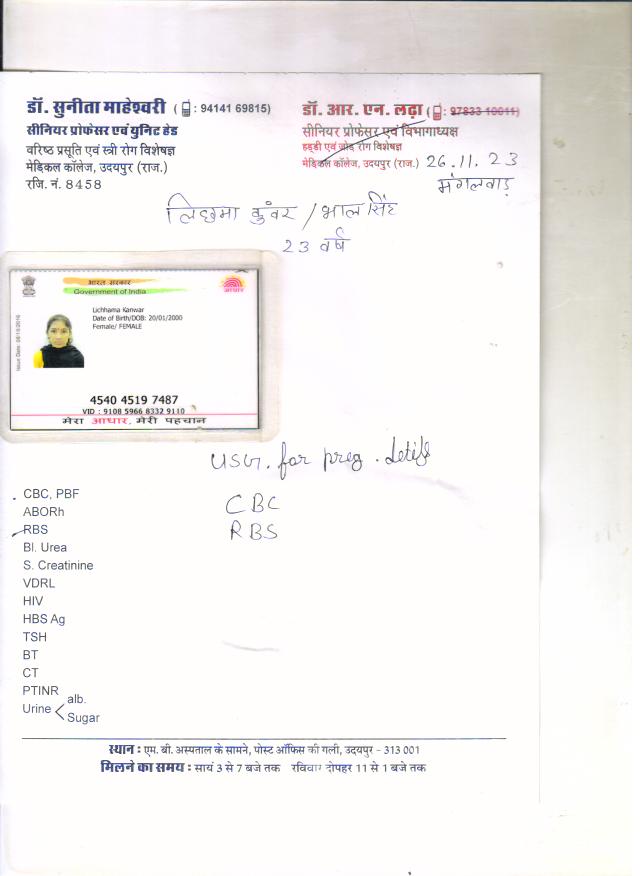 डॉ. सुनीता माहेश्वरी ( : 94141 69815)
सीनियर प्रोफेसर एवं युनिट हेड
वरिष्ठ प्रसूति एवं स्त्री रोग विशेषज्ञ
मेडिकल कॉलेज, उदयपुर (राज.)
रजि. नं. 8458
डॉ. आर. एन. लढ़ा ( : 97833 10011)
सीनियर प्रोफेसर एवं विभागाध्यक्ष
हड्डी एवं जोड़ रोग विशेषज्ञ
मेडिकल कॉलेज, उदयपुर (राज.) 26.11.23
मंगलवाड़
लिछमा कुंवर / भाल सिंह
23 वर्ष
भारत सरकार
Government of India
आधार
Issue Date: 08/10/2016
Lichhama Kanwar
Date of Birth/DOB: 20/01/2000
Female/ FEMALE
4540 4519 7487
VID : 9108 5966 8332 9110
मेरा आधार, मेरी पहचान
USG. for preg.
CBC
RBS
CBC, PBF
ABORh
RBS
Bl. Urea
S. Creatinine
VDRL
HIV
HBS Ag
TSH
BT
CT
PTINR
Urine < alb.
Sugar
स्थान : एम. बी. अस्पताल के सामने, पोस्ट ऑफिस की गली, उदयपुर - 313 001
मिलने का समय : सायं 3 से 7 बजे तक रविवार दोपहर 11 से 1 बजे तक